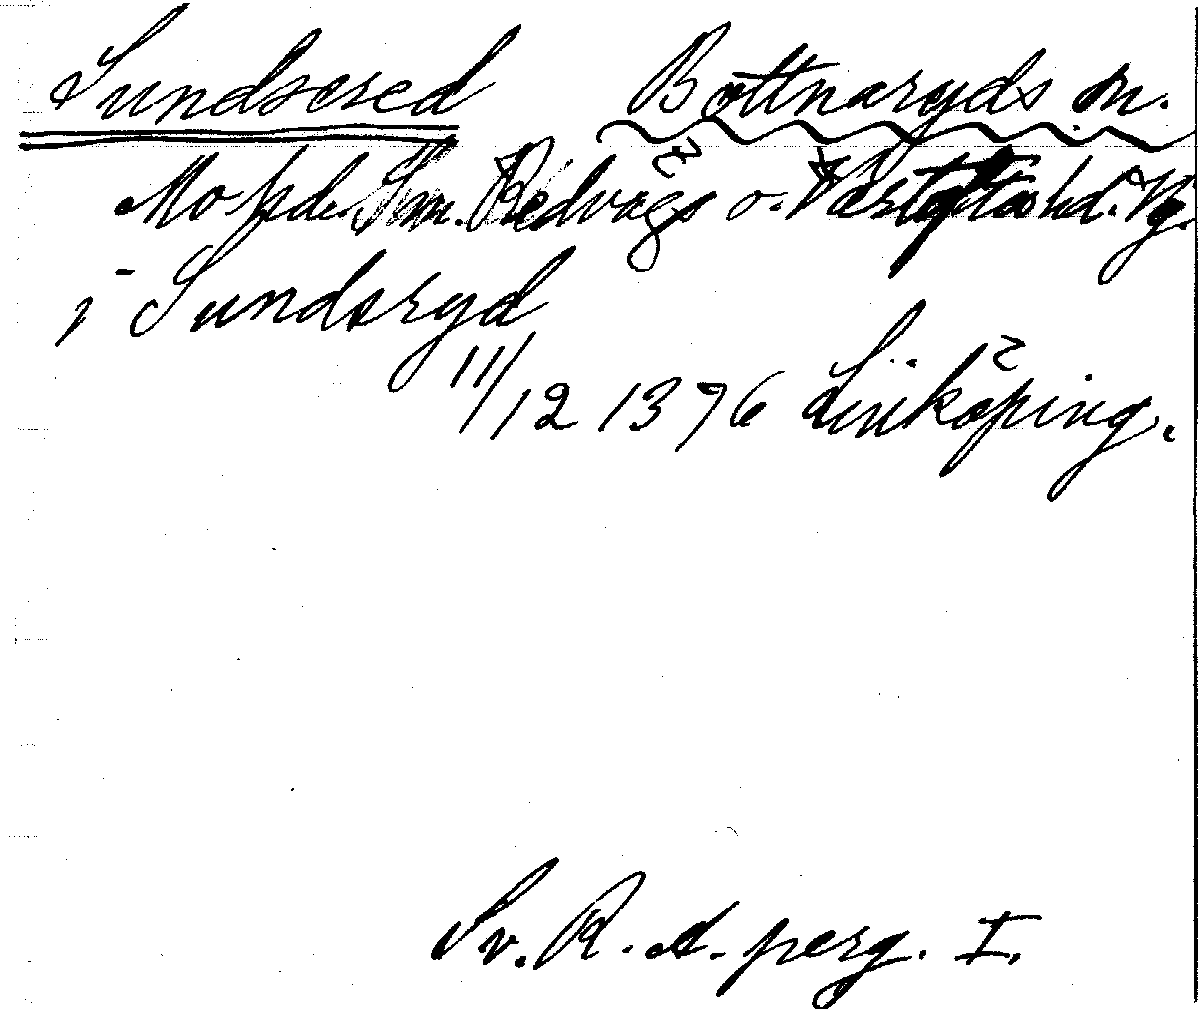 Sundsered Bottnaryds sn.
Mo hd. Sm. Redvägs o. Västg hd. Vg.
i Sundsryd
11/12 1376 Linköping.
Sv. R. A. perg. I.